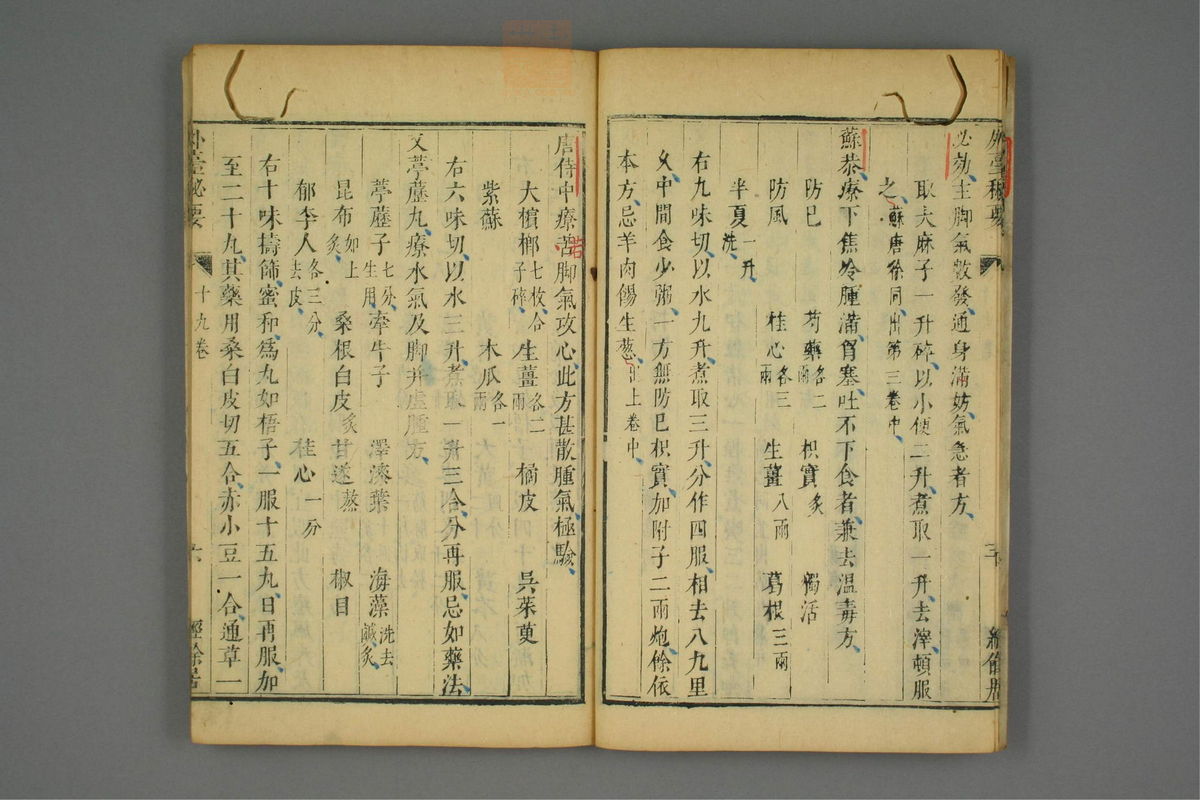 外臺秘要
必効主脚氣數發通身滿妨氣急者方
取大麻子一升碎以小便二升煮取一升去滓頓服
之蘇唐徐同出第三卷中
蘇恭療下焦冷腫滿胷塞吐不下食者兼去温毒方
防巳 芍藥各二兩 枳實炙 獨活
防風 桂心各三兩 生薑八兩 葛根三兩
半夏一升洗
右九味切以水九升煮取三升分作四服相去八九里
乆中間食少粥一方無防巳枳實加附子二兩炮餘依
本方忌羊肉餳生葱出上卷中
唐侍中療苦脚氣攻心此方甚散腫氣極驗
大檳榔七枚合子碎 生薑各二兩 橘皮 吳茱萸
紫蘇 木瓜各一兩
右六味切以水三升煮取一升三合分再服忌如藥法
又葶藶丸療水氣及脚并虛腫方
葶藶子七分生用 牽牛子 澤漆葉 海藻洗去鹹炙
昆布如上炙 桑根白皮炙 甘遂蒸 椒目
郁李人各三分去皮 桂心一分
右十味擣篩蜜和爲丸如梧子一服十五丸日再服加
至二十丸其藥用桑白皮切五合赤小豆一合通草一
外臺秘要 十九卷 六 經餘居